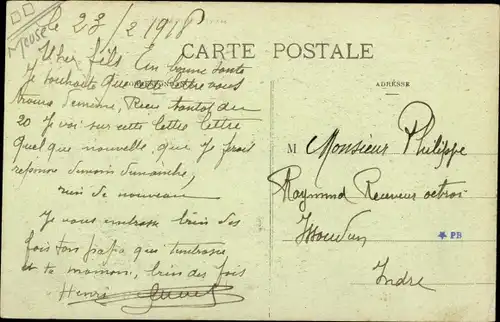 Meuse
le 23/2 1918
CARTE POSTALE
CORRESPONDANCE
ADRESSE
Cher fils En bonne sante
Je souhaite que cette lettre vous
trouve de même, Recu tantot du
20 Je voi sur cette lettre lettre
quel que nouvelle, que Je ferait
reponse demain dimanche,
rien de nouveau
Je vous embrasse bien des
fois ton papa que t'embrasse
et te maman, bien des fois
Henri
M Monsieur Philippe
Raymond Receveur octroi
Issoudun
Indre
PB